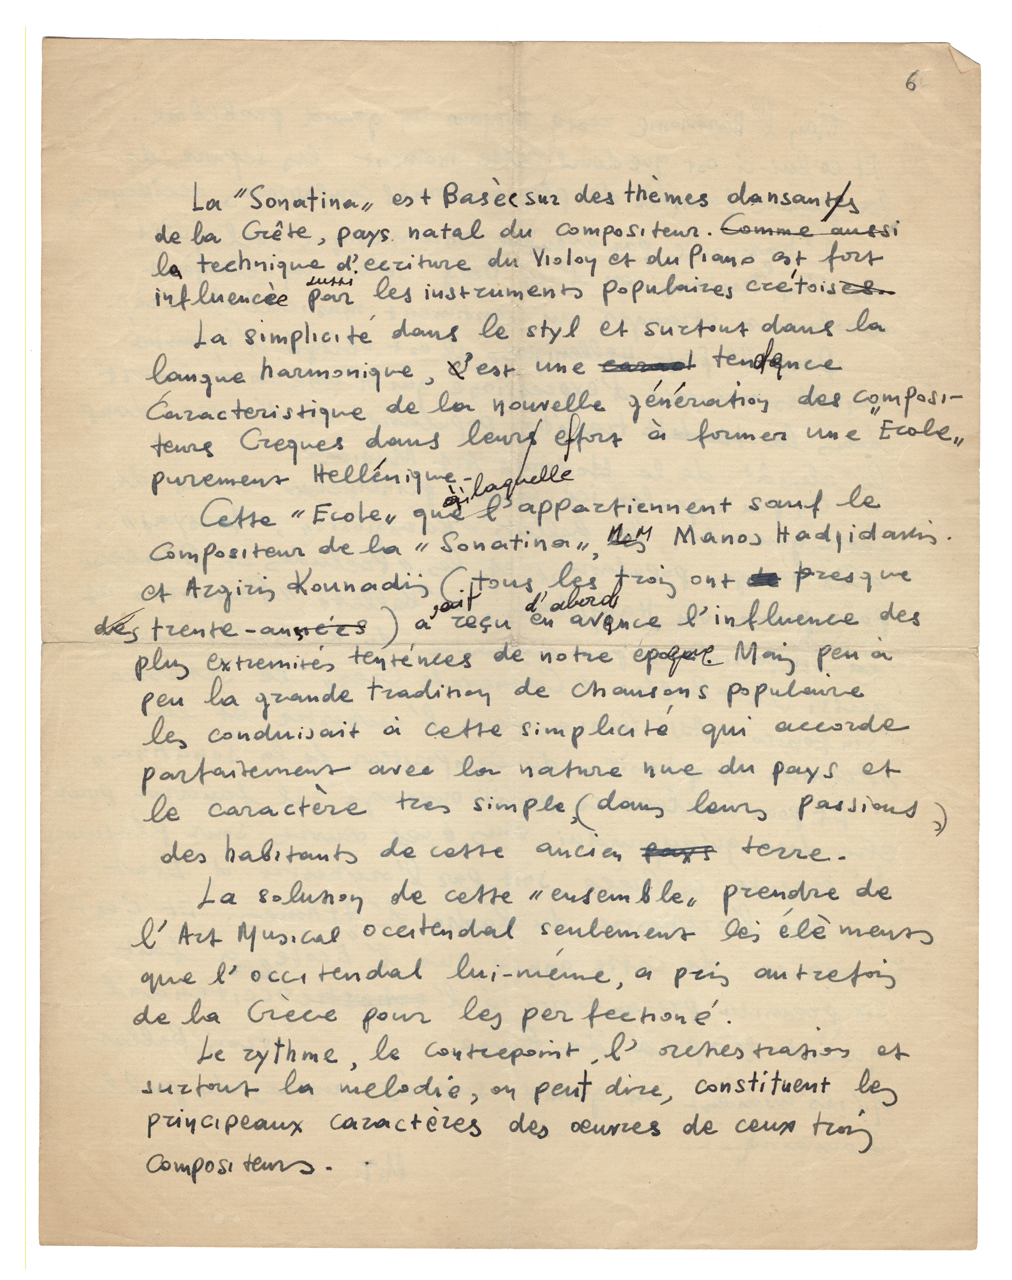 6
La "Sonatina" est Basèe sur des thèmes dansants
de la Crête, pays natal du compositeur. Comme aussi
la technique d'ecriture du Violon et du Piano est fort
aussi
influencèe par les instruments populaires crétois
La simplicité dans le styl et surtout dans la
langue harmonique, c'est une tendance
Caracteristique de la nouvelle génération des composi-
teurs Greques dans leurs effort à former une "Ecole"
purement Hellénique.
à laquelle
Cette "Ecole" que l'appartiennent sauf le
Compositeur de la "Sonatina", Manos Hadjidakis
et Argiris Kounadis (tous les trois ont presque
ait d'abord
des trente-années) a reçu en avance l'influence des
plus extremités tenténces de notre époque. Mais peu à
peu la grande tradition de chansons populaire
les conduisait à cette simplicité qui accorde
parfaitement avec la nature nue du pays et
le caractère tres simple, (dans leurs passions,)
des habitants de cette ancien pays terre.
La solution de cette "ensemble" prendre de
l'Art Musical occitendal seulement les élèments
que l'occitendal lui-même, a pris autrefois
de la Grèce pour les perfectioné.
Le rythme, le contrepoint, l'orchestration et
surtout la melodie, on peut dire, constituent les
principeaux caractères des œuvres de ceux trois
compositeurs.